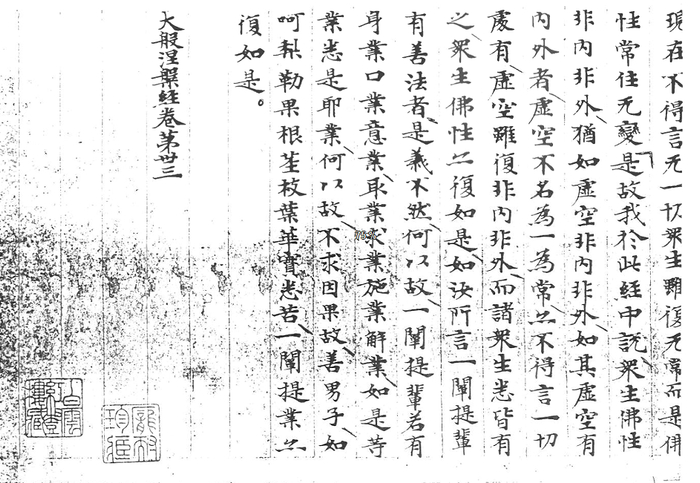 現在不得言无一切衆生雖復无常而是佛
性常住无變是故我於此經中說衆生佛性
非內非外猶如虛空非內非外如其虛空有
內外者虛空不名為一為常亦不得言一切
處有虛空雖復非內非外而諸衆生悉皆有
之衆生佛性亦復如是如汝所言一闡提輩
有善法者是義不然何以故一闡提輩若有
身業口業意業取業求業施業解業如是等
業悉是邪業何以故不求因果故善男子如
呵梨勒果根莖枝葉華實悉苦一闡提業亦
復如是。
大般涅槃經卷第卅三